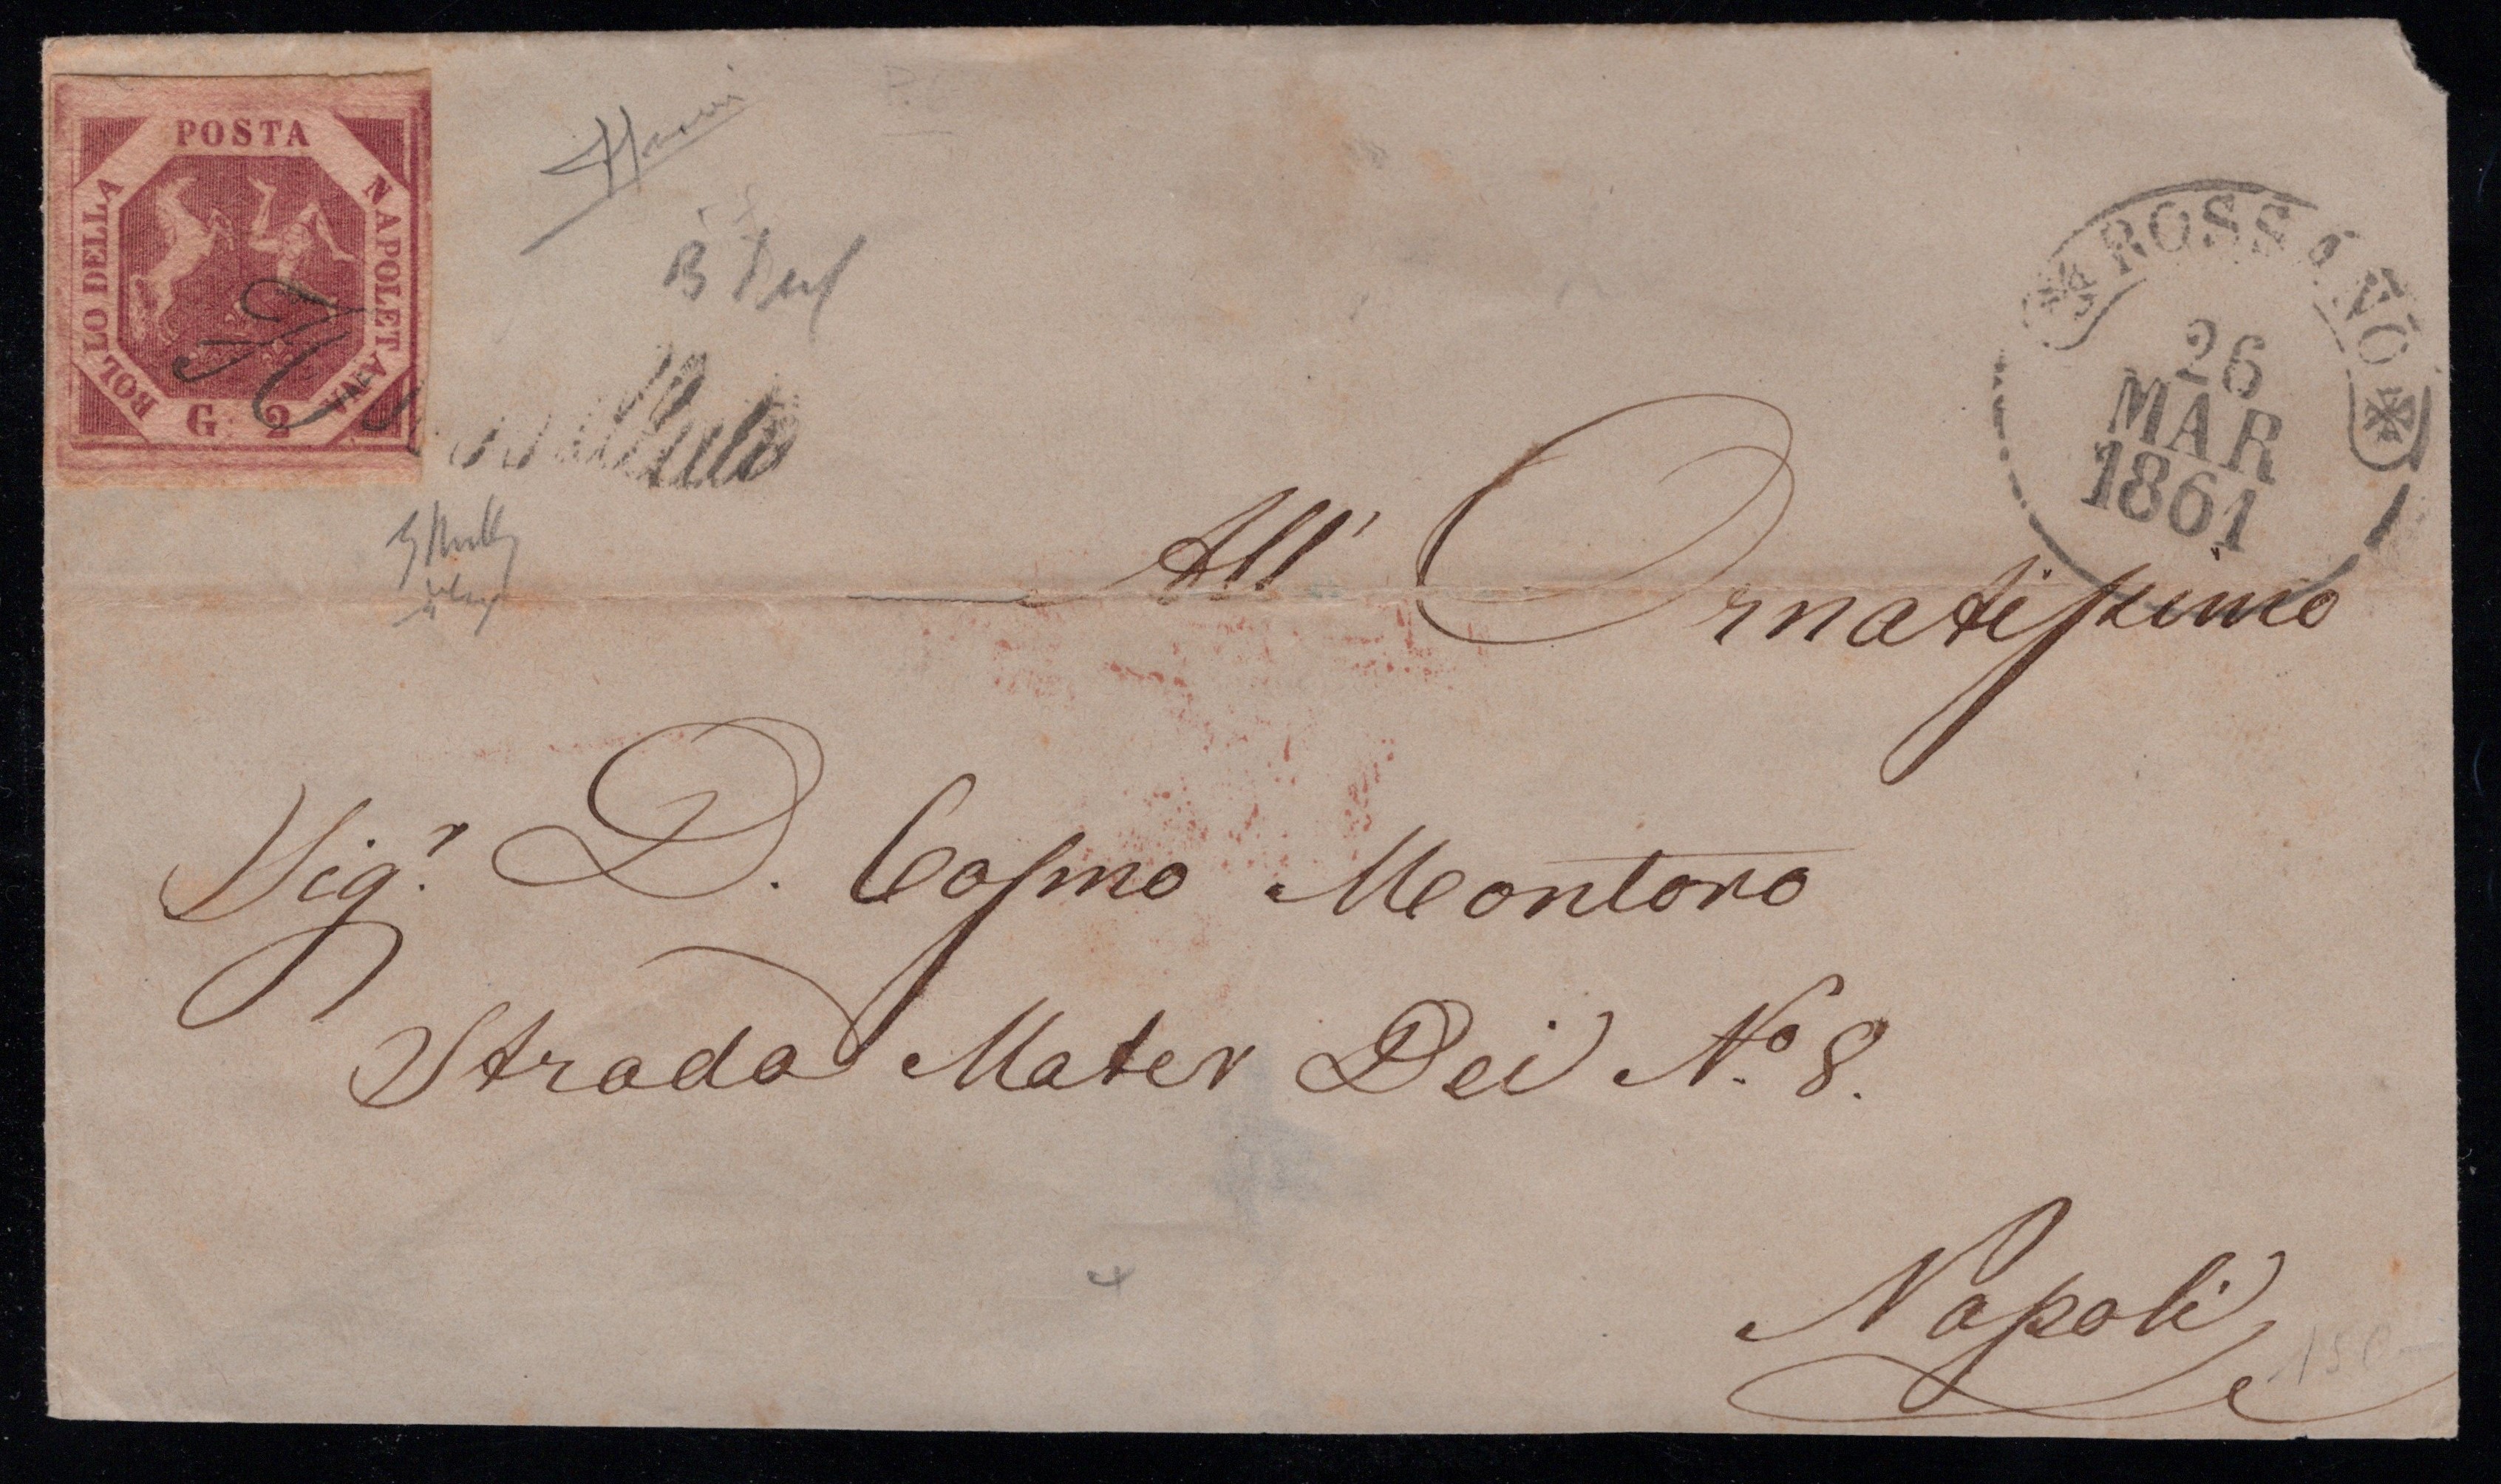 BOLLO DELLA
POSTA
NAPOLETANA
G. 2
ROSSANO
26
MAR
1861
All' Ornatissimo
Sig.r D. Cosmo Montoro
Strada Mater Dei N.o 8.
Napoli
150